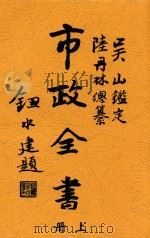 吳山鑑定
陸丹林總纂
市政全書
鈕永建題
上册